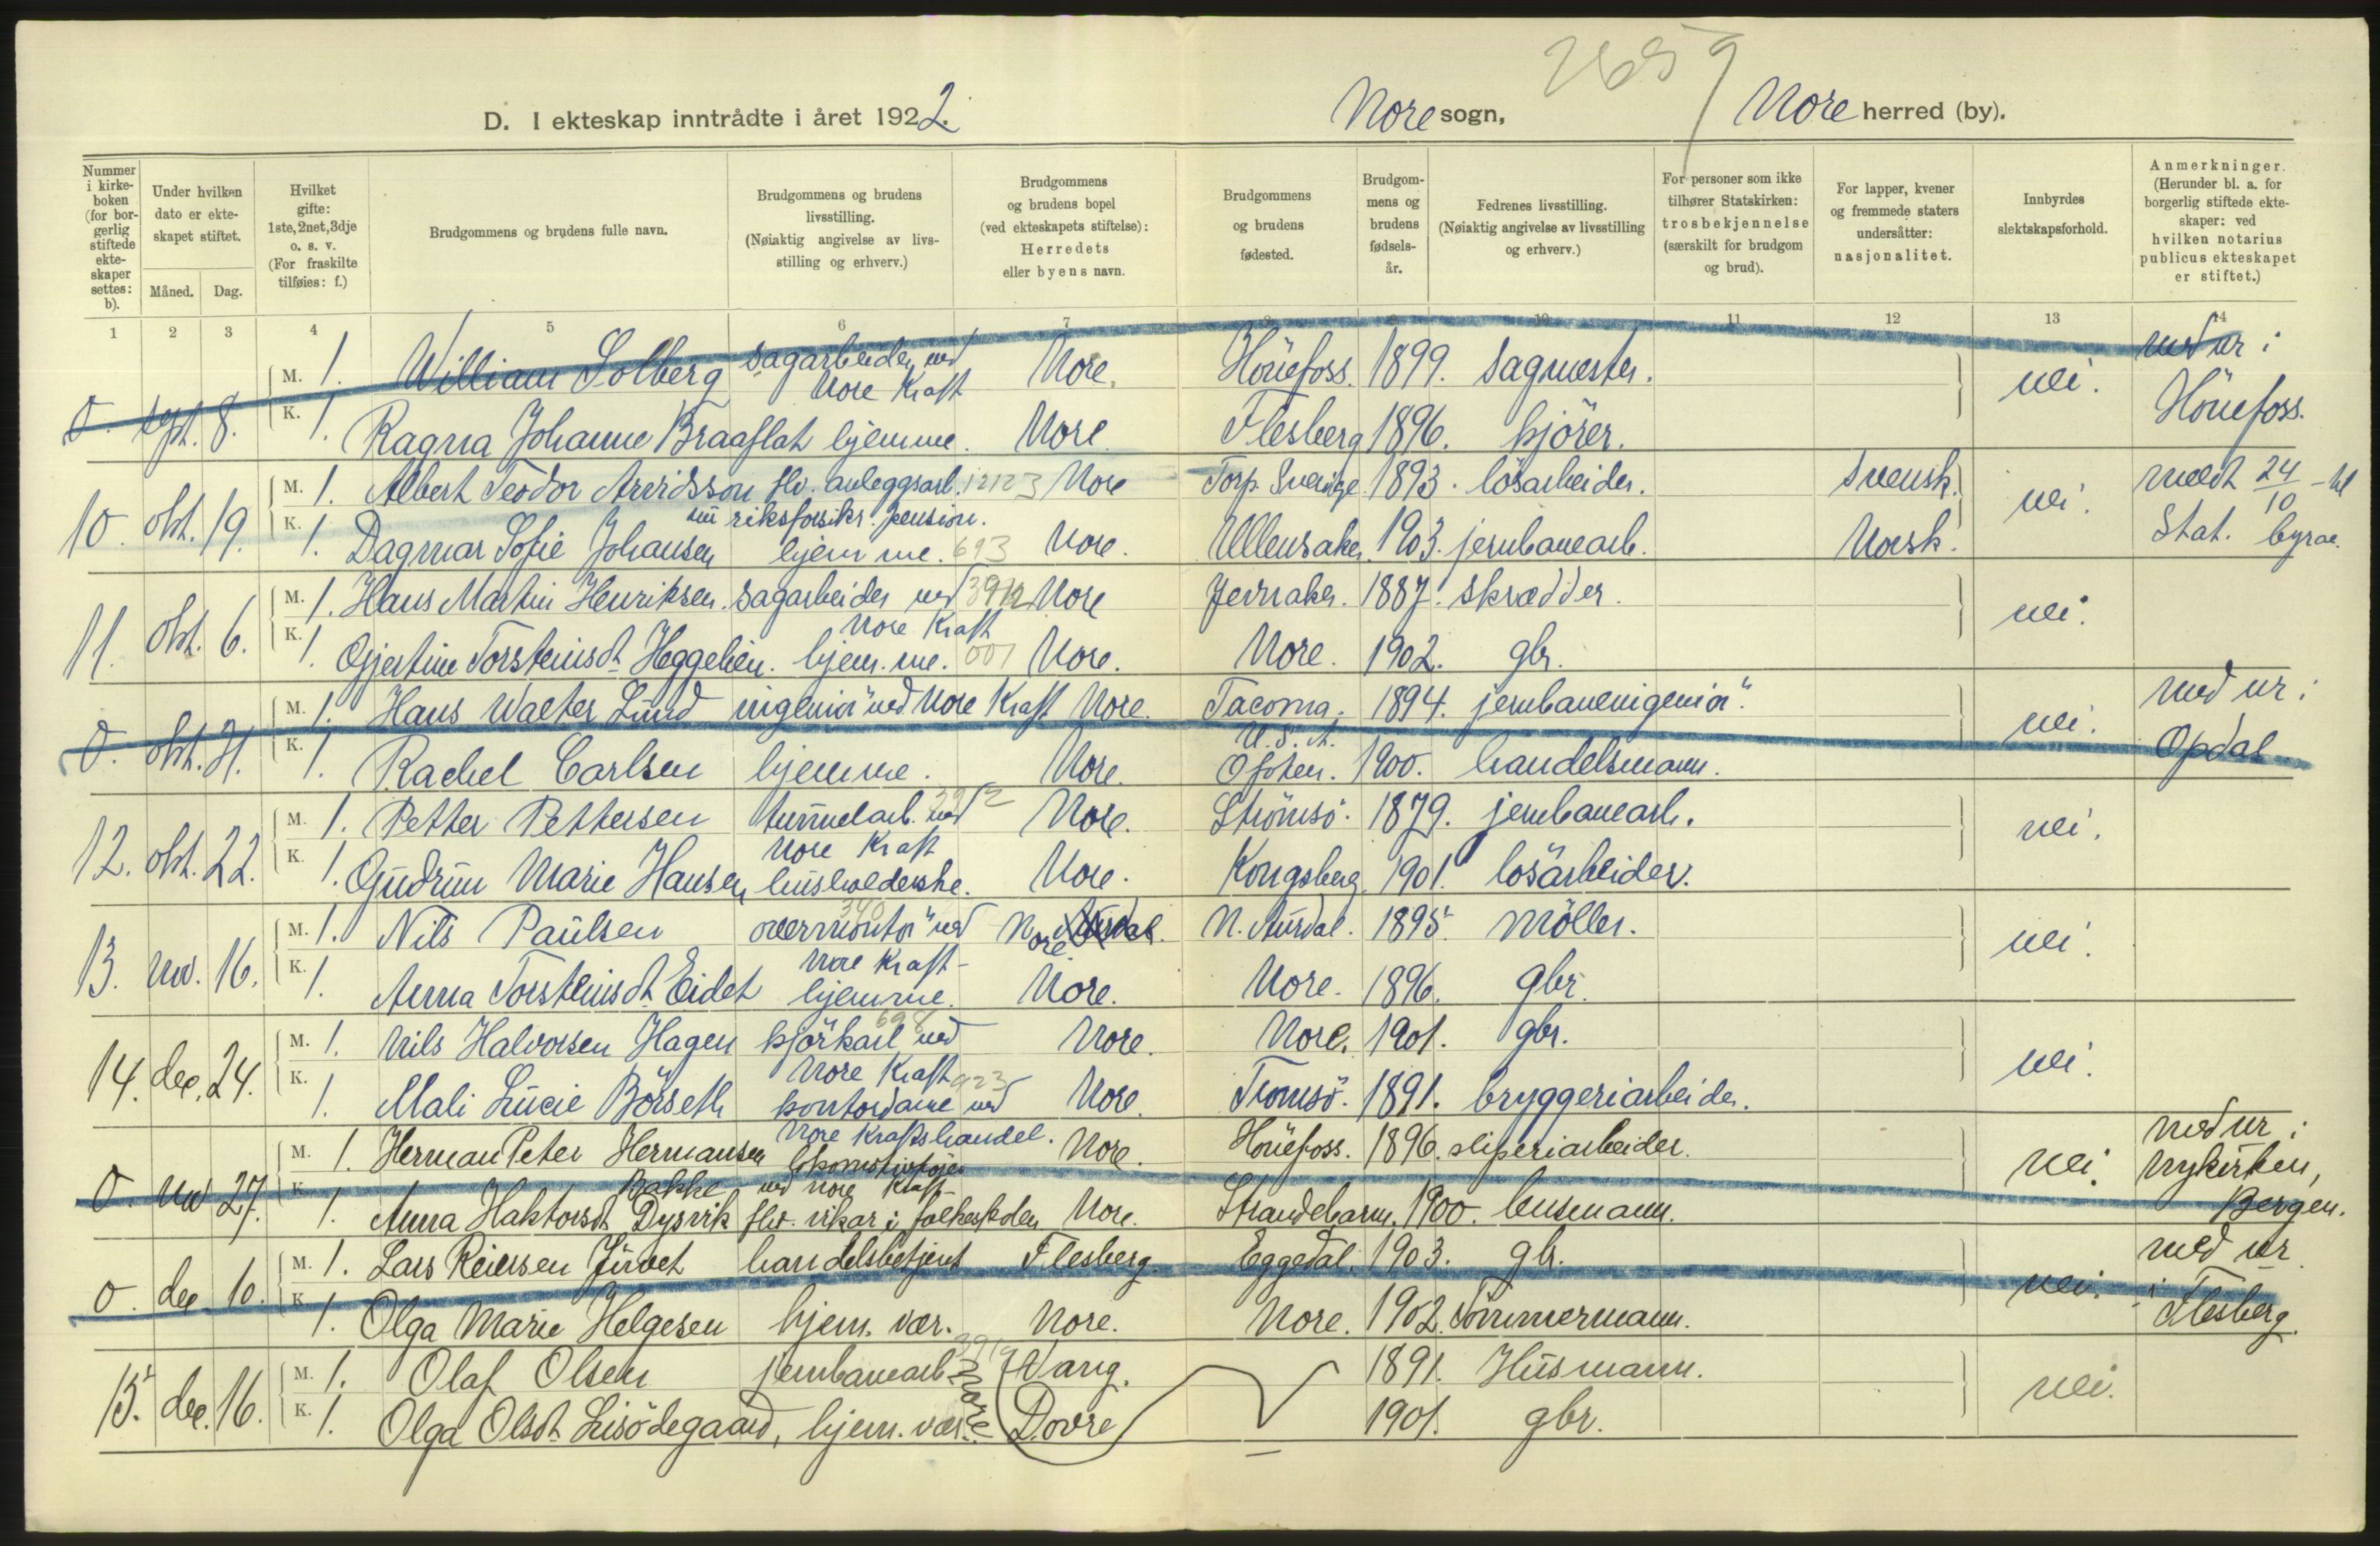 2659
D. I ekteskap inntrådte i året 1922. Nore sogn, Nore herred (by).
Nummer i kirke-boken (for bor-gerlig stiftede ekte-skaper settes: b).
Under hvilken dato er ekte-skapet stiftet.
Måned. Dag.
Hvilket gifte: 1ste, 2net, 3dje o. s. v. (For fraskilte tilføies: f.)
Brudgommens og brudens fulle navn.
Brudgommens og brudens livsstilling. (Nøiaktig angivelse av livs-stilling og erhverv.)
Brudgommens og brudens bopel (ved ekteskapets stiftelse): Herredets eller byens navn.
Brudgommens og brudens fødested.
Brudgom-mens og brudens fødsels-år.
Fedrenes livsstilling. (Nøiaktig angivelse av livsstilling og erhverv.)
For personer som ikke tilhører Statskirken: trosbekjennelse (særskilt for brudgom og brud).
For lapper, kvener og fremmede staters undersåtter: nasjonalitet.
Innbyrdes slektskapsforhold.
Anmerkninger. (Herunder bl. a. for borgerlig stiftede ekte-skaper: ved hvilken notarius publicus ekteskapet er stiftet.)
1 2 3 4 5 6 7 8 9 10 11 12 13 14
0. sept. 8. M. 1. William Solberg sagarbeider ved Nore Kraft Nore. Hönefoss. 1899. sagmester. nei. med nr i Hönefoss.
K. 1. Ragna Johanne Braaflat hjemme. Nore Flesberg 1896. kjörer.
10. okt. 19. M. 1. Albert Teodor Arvidsson flv. anleggsarb. 12123 Nore Torp. Sverige 1893. lösarbeider. Svensk. nei. meldt 24/10 - til Stat. byraa.
riksforsikr. pension.
K. 1. Dagmar Sofie Johansen hjemme. 693 Nore. Ullensaker. 1903. jernbanearb. Norsk.
11. okt. 6. M. 1. Hans Martin Henriksen. sagarbeider ved Nore Kraft 3912 Nore Jevnaker. 1887. skrædder. nei.
K. 1. Gjertine Torsteinsdt. Heggelien. hjemme. 001 Nore. Nore. 1902. gbr.
0. okt. 21. M. 1. Hans Walter Lund ingeniör ved Nore Kraft Nore. Tacoma. U.S.A. 1894. jernbaneingeniör. nei. med nr i Opdal
K. 1. Rachel Carlsen hjemme. Nore. Ofoten. 1900. handelsmann.
12. okt. 22. M. 1. Petter Pettersen tunnelarb. ved Nore Kraft Nore. Strömsö. 1879. jernbanearb. nei.
K. 1. Gudrun Marie Hansen husholderske. Nore. Kongsberg. 1901. lösarbeider.
13. nov. 16. M. 1. Nils Paulsen overmontör ved Nore Kraft - Nore. N. Aurdal. 1895. möller. nei.
K. 1. Anna Torsteinsdt. Eidet hjemme. Nore. Nore. 1896. gbr.
14. dec. 24. M. 1. Nils Halvorsen Hagen kjörkarl ved Nore Kraft 698 Nore. Nore. 1901. gbr. nei.
K. 1. Mali Lucie Börseth kontordame ved Nore Kraftshandel. 923 Nore. Tromsö. 1891. bryggeriarbeider.
0. nov 27. M. 1. Herman Peter Hermansen Bakke lokomotivfører ved Nore Kraft - Nore. Hönefoss. 1896. sliperiarbeider. nei. med nr i Nykirken, Bergen.
K. 1. Anna Haktorsdt. Dysvik flv. vikar i folkeskolen Nore. Strandebarm. 1900. lensmann.
0. dec. 10. M. 1. Lars Reiersen Juvet handelsbetjent Flesberg. Eggedal. 1903. gbr. nei. med nr i Flesberg.
K. 1. Olga Marie Helgesen hjem. vær. Nore. Nore. 1902. Tömmermann.
15. dec. 16. M. 1. Olaf Olsen jernbanearb. Nore (Vang. 1891. Husmann. nei.
K. 1. Olga Olsdt. Lisödegaard, hjem. vær. Dovre) 1901. gbr.